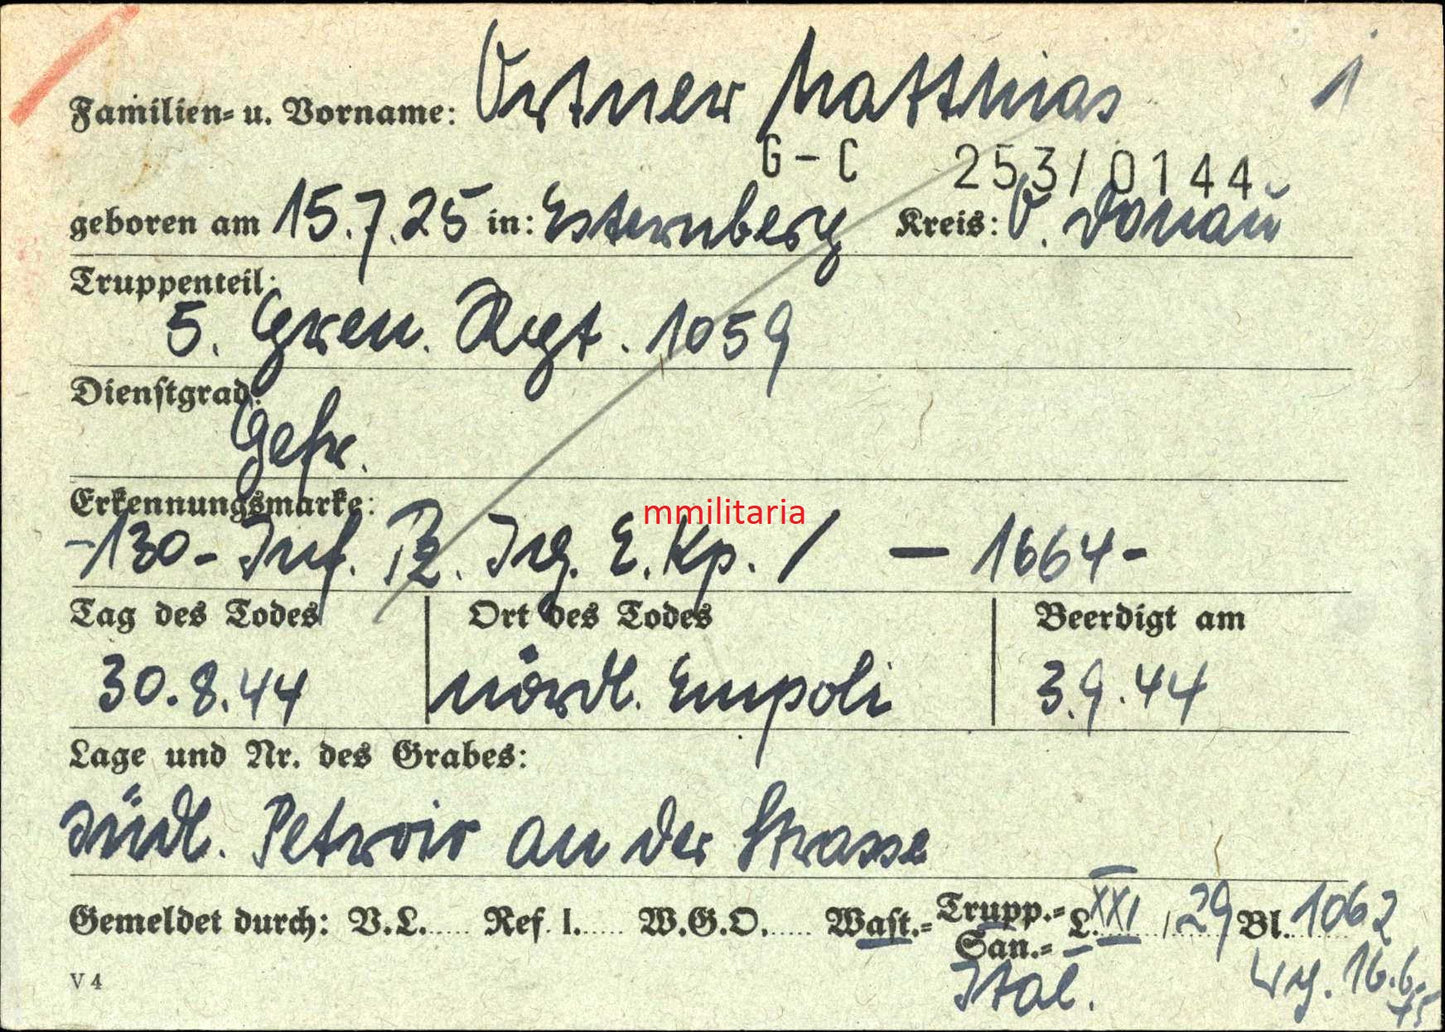 Familien- u. Vorname: Ortner Matthias 1
G-C 253/0144
geboren am 15.7.25 in: Esternberg Kreis: O. Donau
Truppenteil:
5. Gren. Rgt. 1059
Dienstgrad:
Gefr.
Erkennungsmarke:
mmilitaria
-130- Inf. Pz. Jg. E. Kp. / — 1664-
Tag des Todes Ort des Todes Beerdigt am
30.8.44 nördl. Empoli 3.9.44
Lage und Nr. des Grabes:
südl. Petroio an der Strasse
Gemeldet durch: V.L..... Ref. I..... W.G.O..... Wast.= Trupp.=
San.= L. XXI / 29 Bl. 1062
Ital. 16.6.
V 4